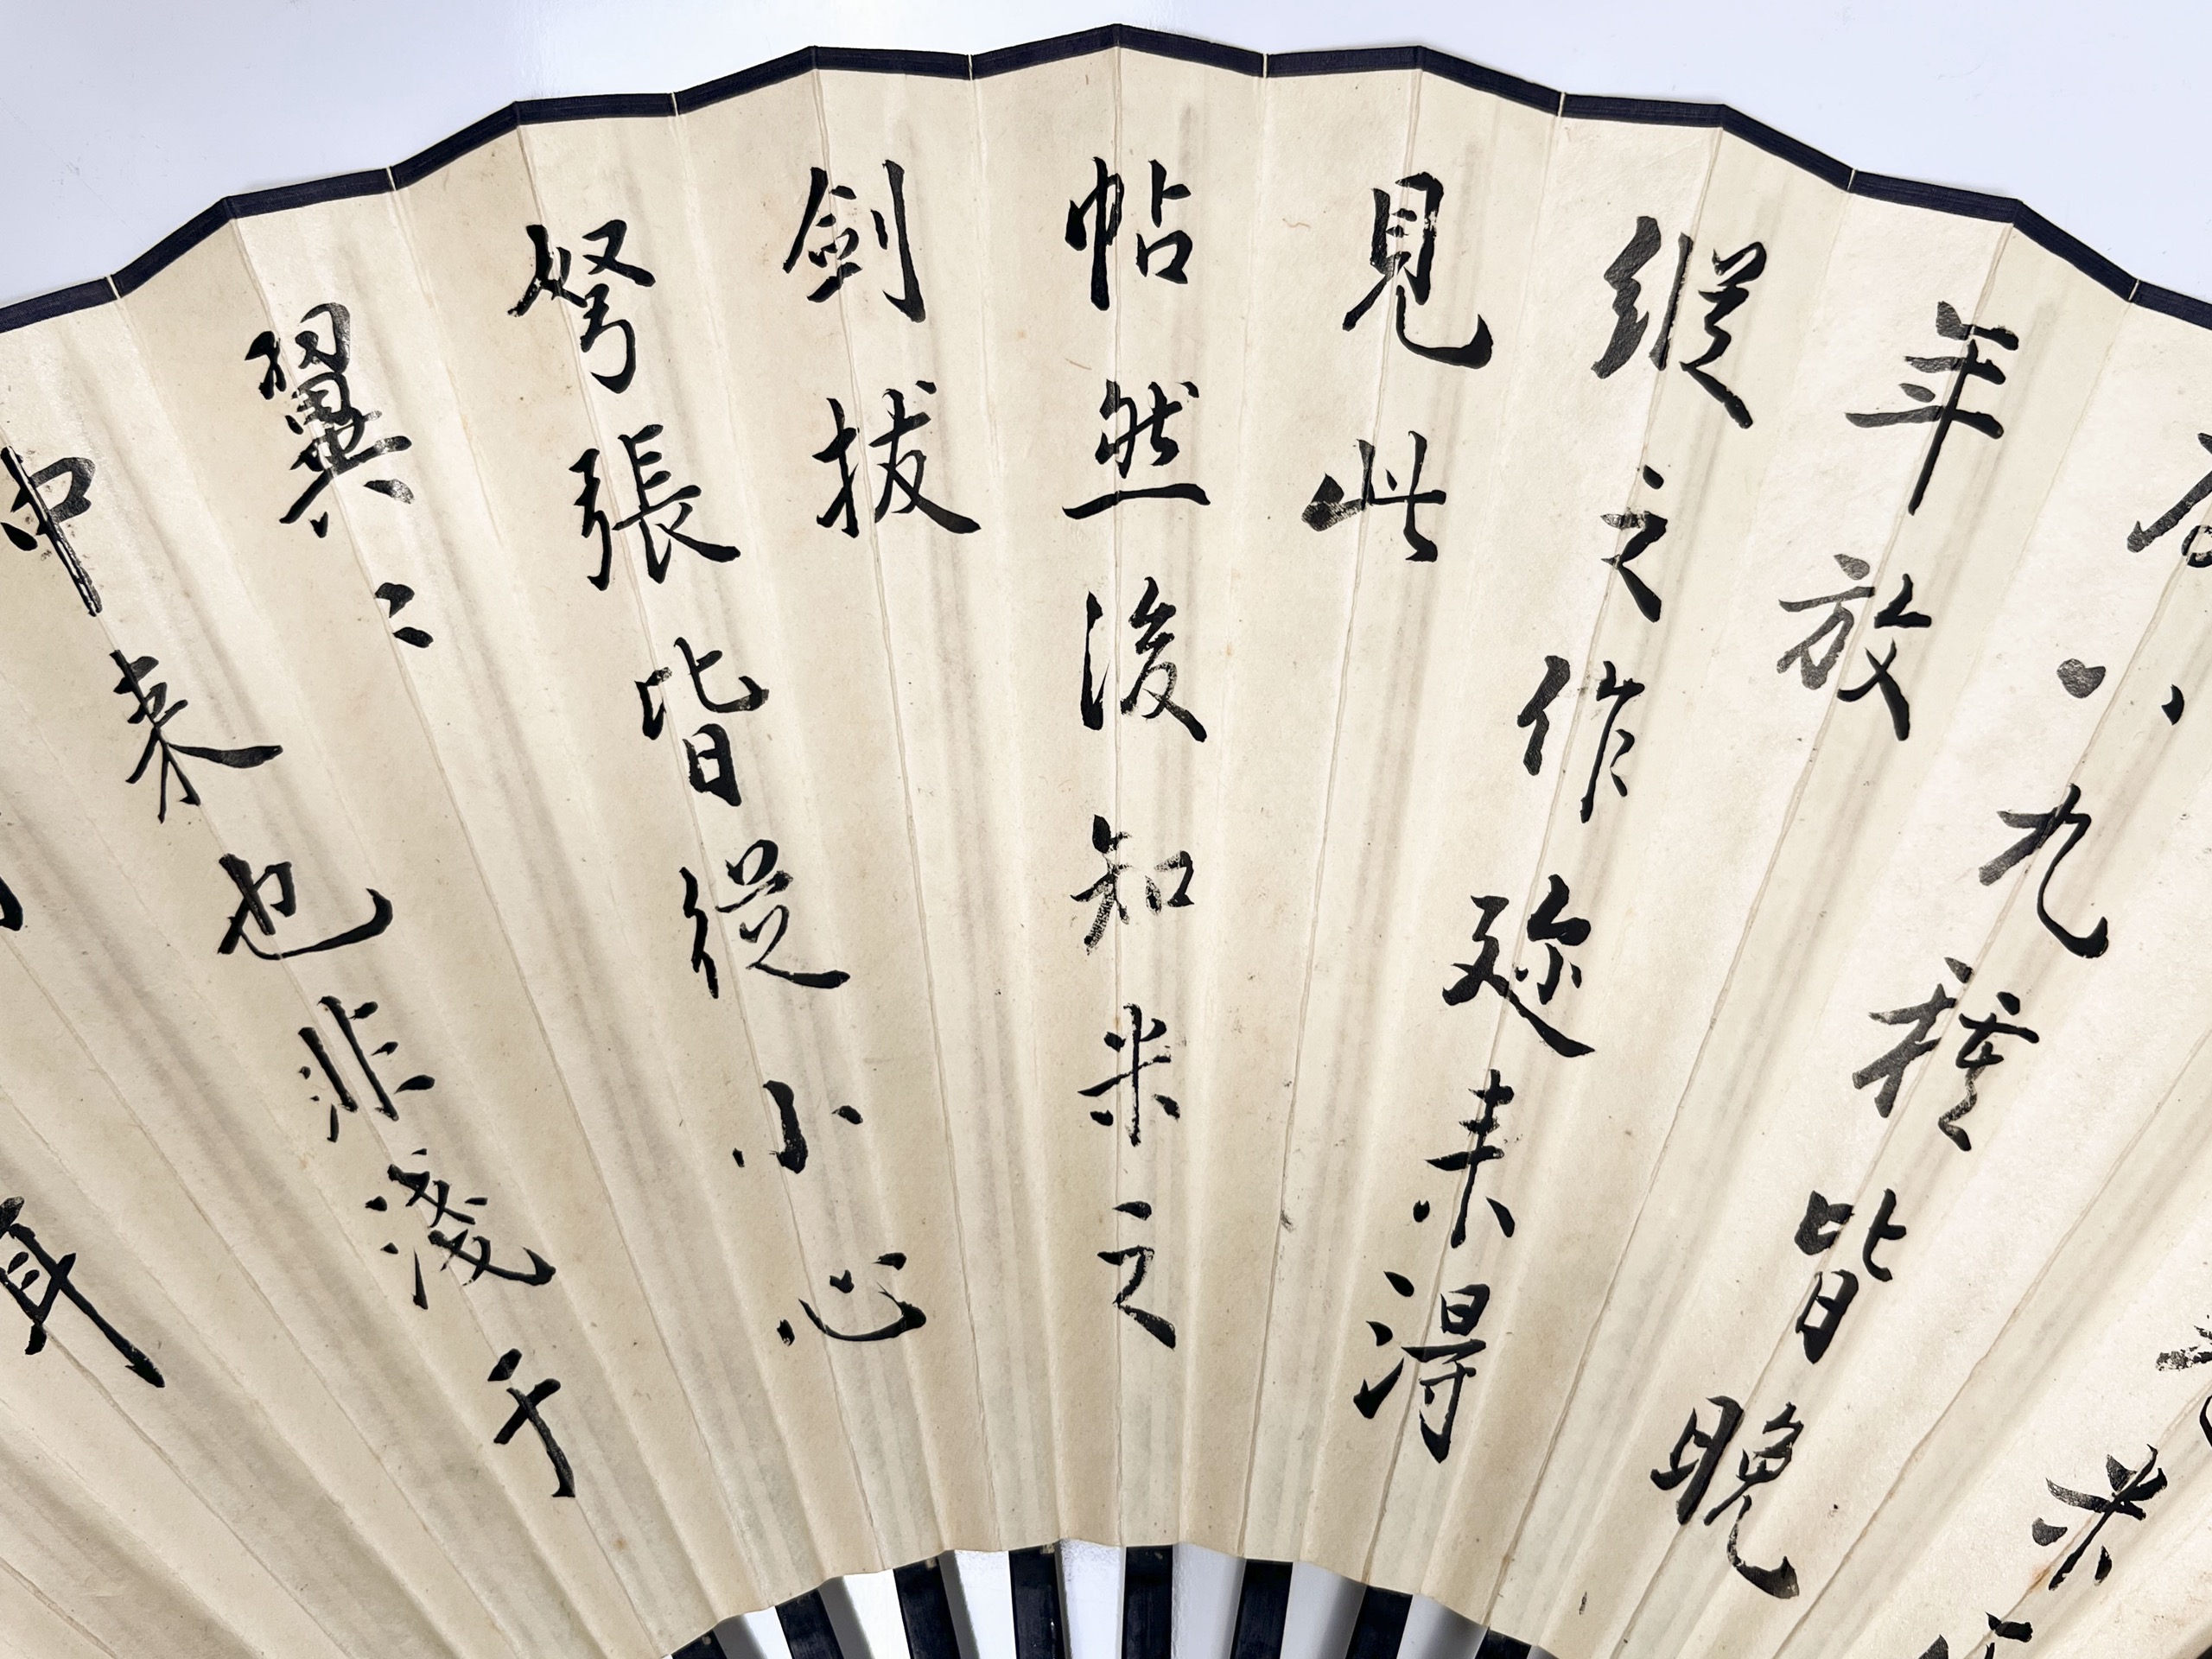 八九種皆晚
年放
縱之作迩来得
見此
帖然後知米之
劍拔
弩張皆從小心
翼〻
中来也非淺于